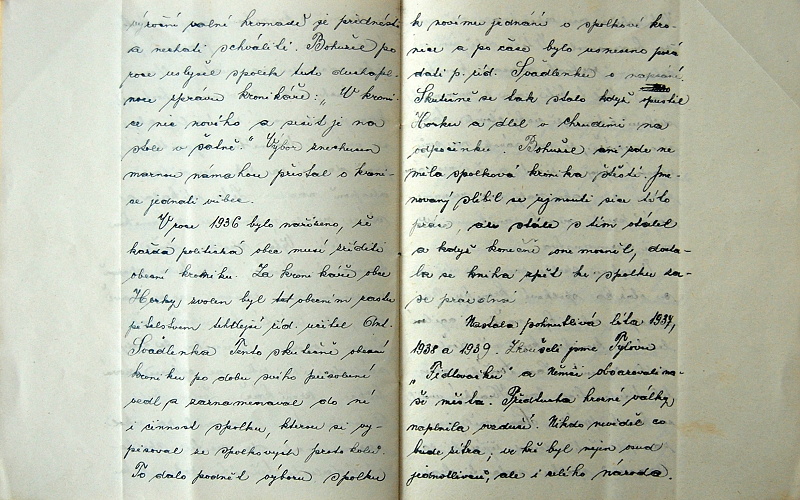 výroční valné hromadě je přednésti
a nechati schváliti. Bohužel po
roce uslyšel spolek tuto duchapl-
nou zprávu kronikáře: „V kroni-
ce nic nového a sešit je na
stole v šatně." Výbor znechucen
marnou námahou přestal o kroni-
se jednati vůbec.
V roce 1936 bylo nařízeno, že
každá politická obec musí zříditi
obecní kroniku. Za kronikáře obce
Horky zvolen byl obecním zastu
pitelstvem tehdejší říd. učitel Ant.
Švadlenka Tento skutečně obecní
kroniku po dobu svého působení
vedl a zaznamenával do ní
i činnost spolku, kterou si vy-
pisoval ze spolkových protokolů.
To dalo podnět výboru spolku
k novému jednání o spolkové kro-
nice a po čase bylo usneseno požá
dati p. říd. Švadlenku o napsání.
Skutečně se tak stalo když opustil
Horku a dlel v Chrudimi na
odpočinku. Bohužel ani zde ne
měla spolková kronika štěstí. Jme-
novaný slíbil se ujmouti sice této
práce, ale stále s tím otálel
a když konečně onemocněl, dosta-
la se kniha zpět ke spolku za-
se prázdná
Nastala pohnutlivá léta 1937,
1938 a 1939. Zkoušeli jsme Tylovu
„Fidlovačku" a Němci obsazovali na-
še města. Předtucha hrozné války
naplnila vzduší. Nikdo nevěděl co
bude zítra, ve hře byl nejen osud
jednotlivců, ale i celého národa.